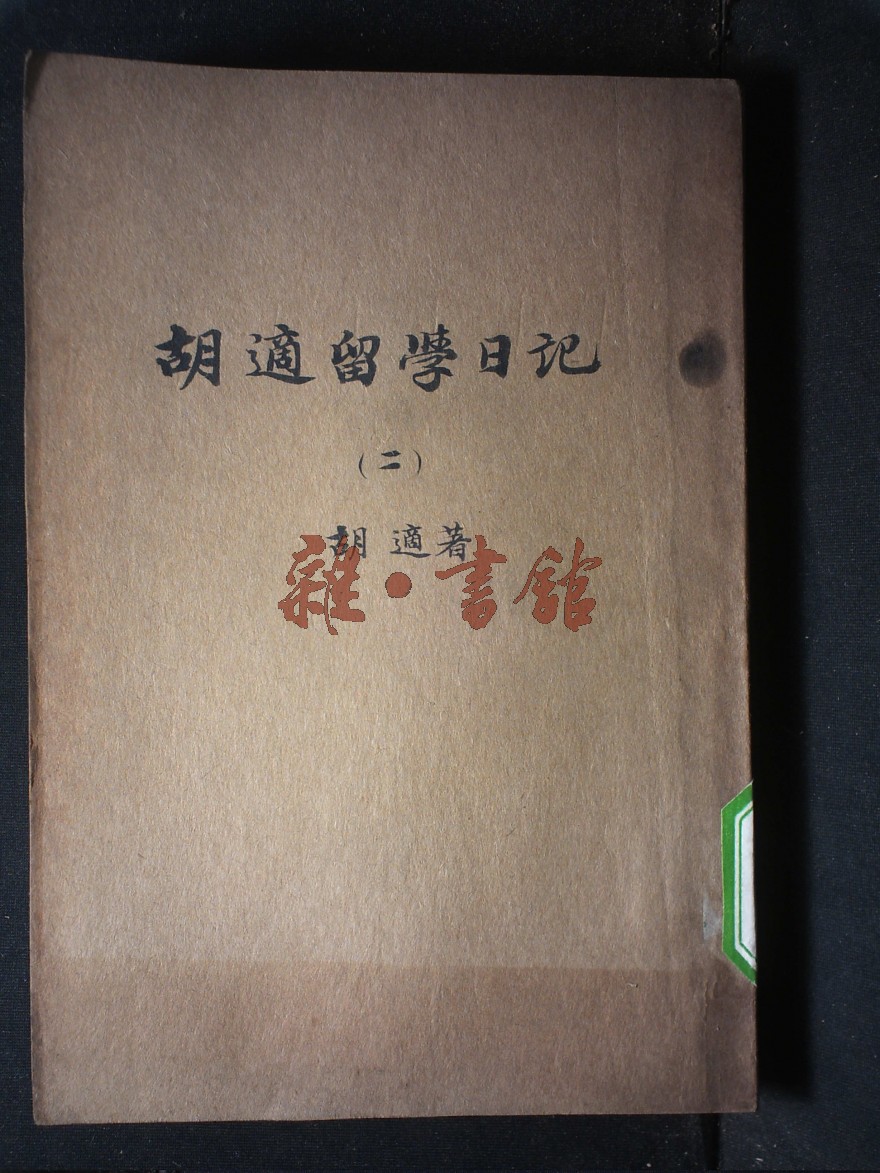 胡適留學日記
(二)
胡適著
雜·書館